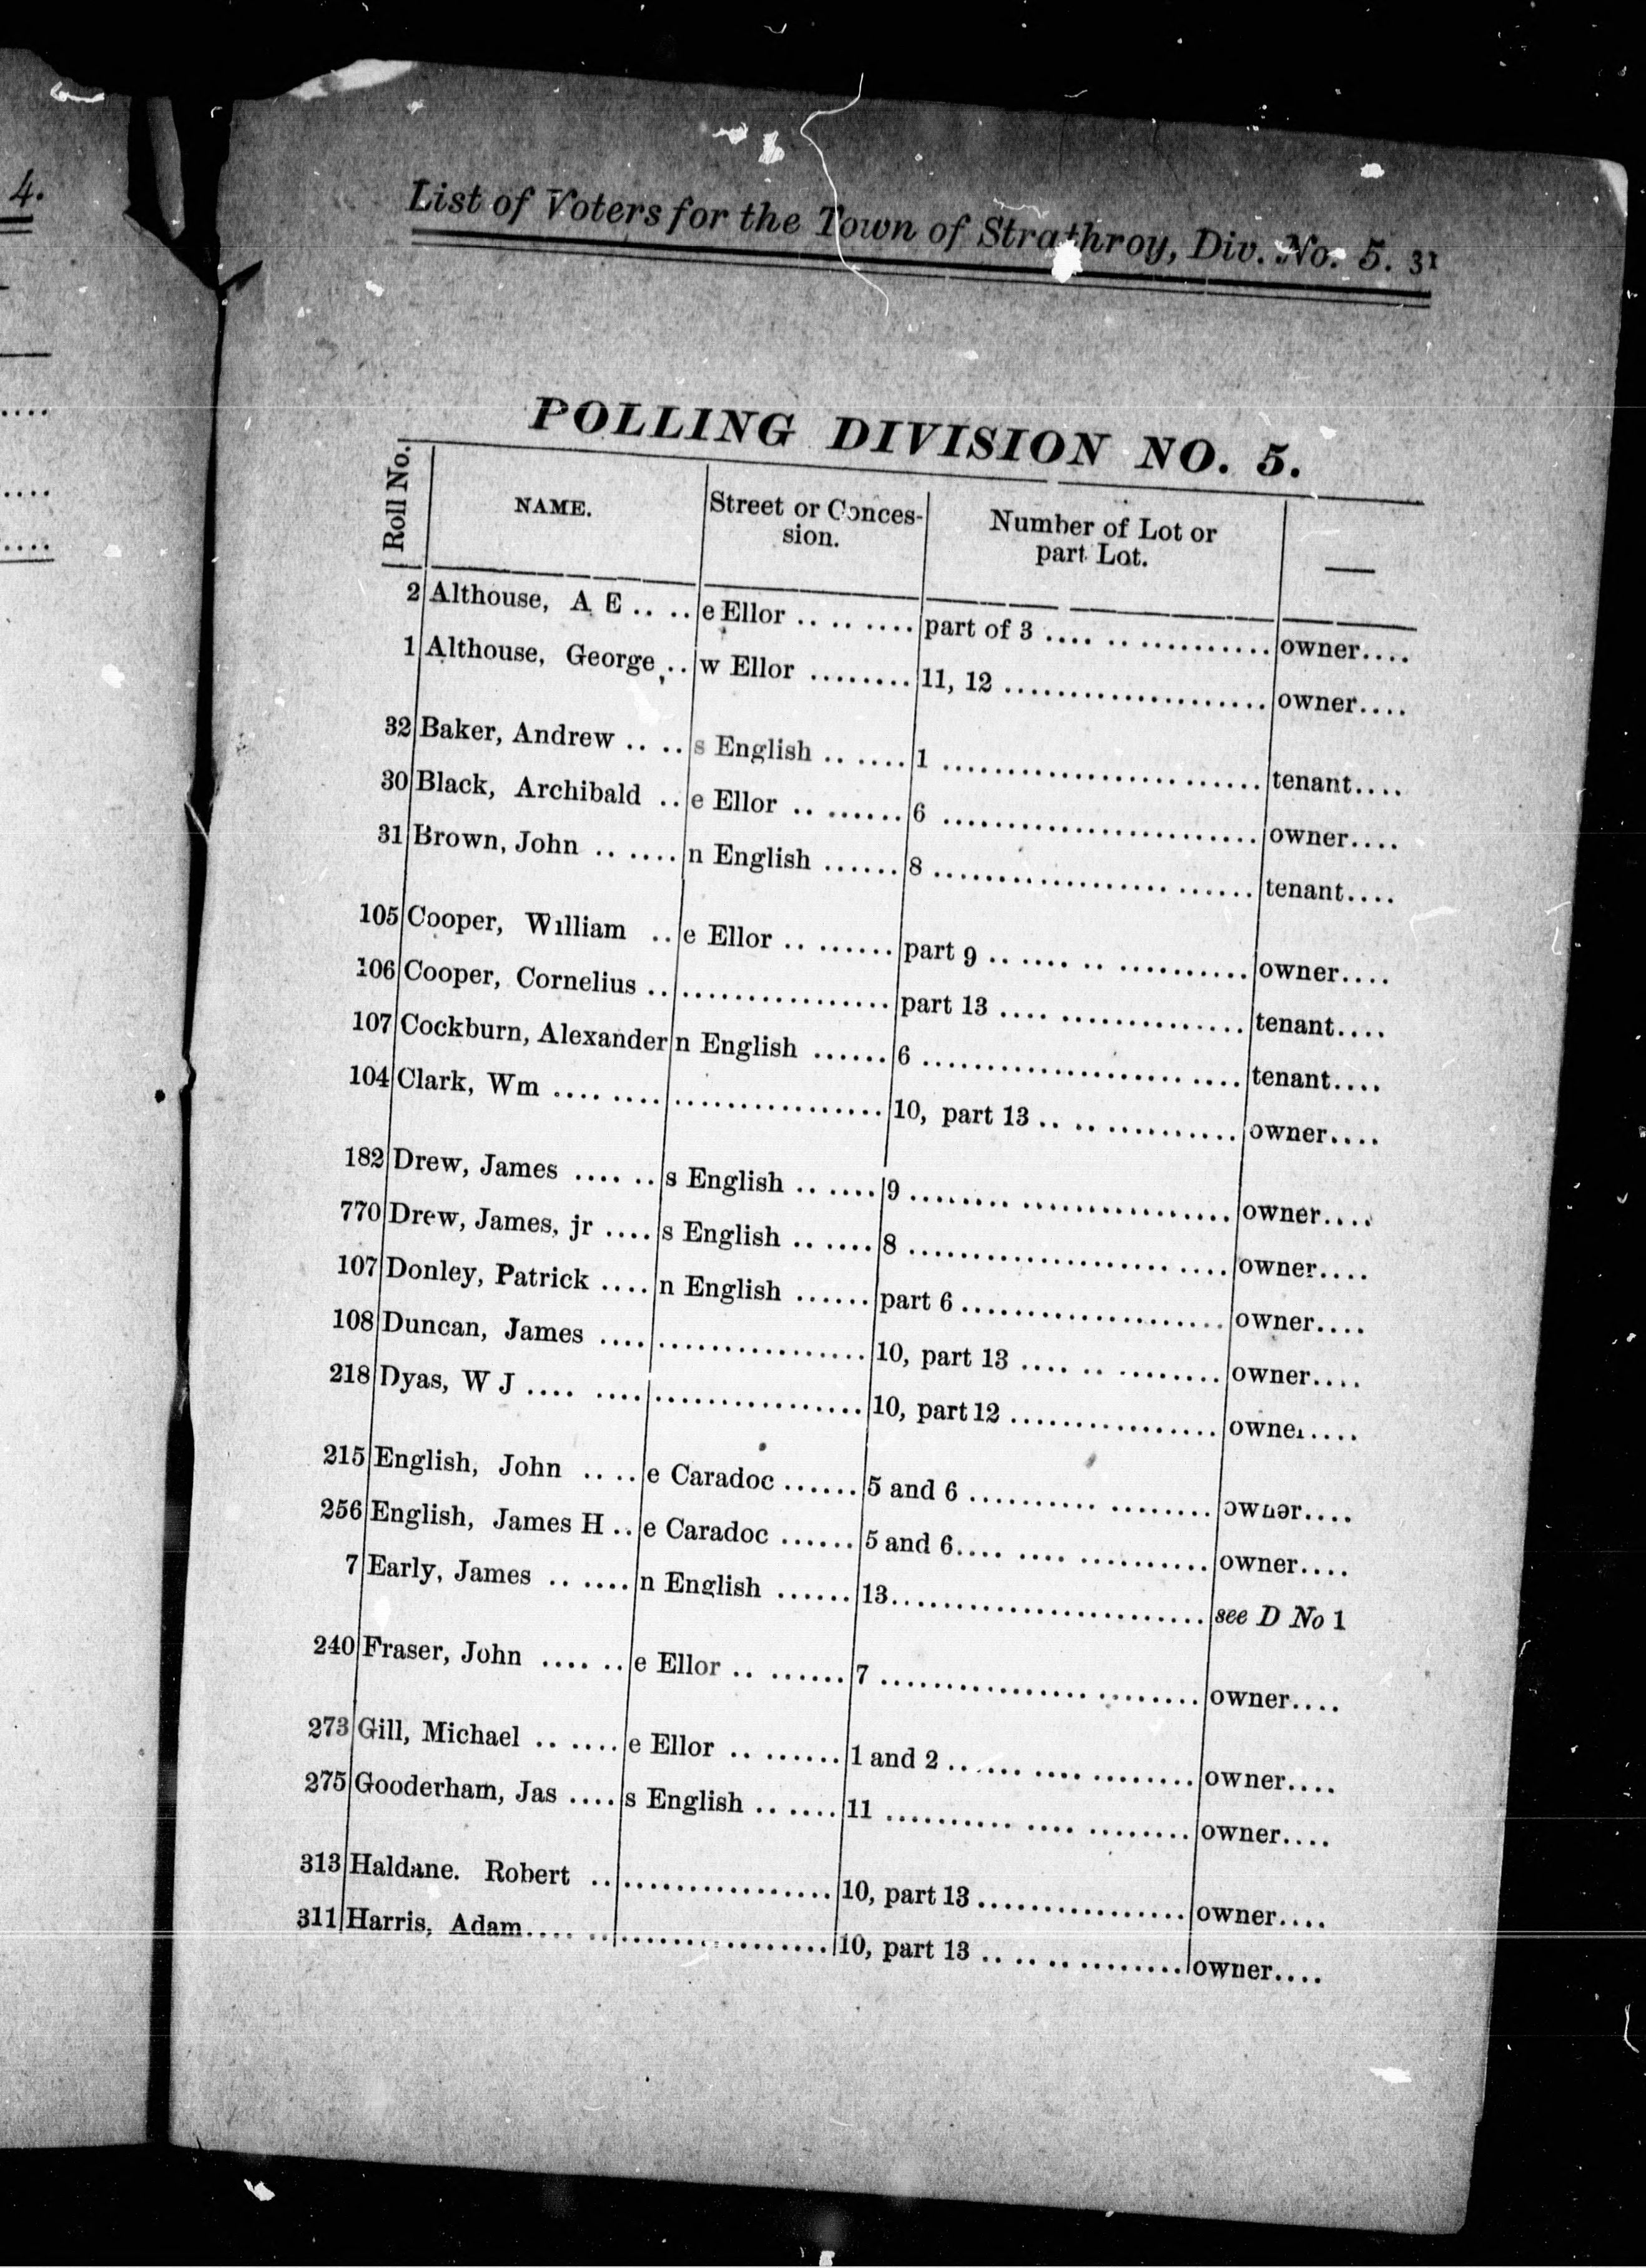 4.
List of Voters for the Town of Strathroy, Div. No. 5. 31
POLLING DIVISION NO. 5.
Roll No. NAME. Street or Conces- Number of Lot or
sion. part Lot. —
2 Althouse, A E .. .. e Ellor .. .. .... part of 3 .... .. .......... owner....
1 Althouse, George .. w Ellor ........ 11, 12 .................... owner....
32 Baker, Andrew .. .. s English .. .... 1 .................. ...... tenant....
30 Black, Archibald .. e Ellor .. ...... 6 ........................ owner....
31 Brown, John .. .... n English ...... 8 .................. ...... tenant....
105 Cooper, William .. e Ellor .. ...... part 9 .. .... .. .......... owner....
106 Cooper, Cornelius .. ................ part 13 .... .............. tenant....
107 Cockburn, Alexander n English ...... 6 .................... .... tenant....
104 Clark, Wm .... .... ................ 10, part 13 .. .. .......... owner....
182 Drew, James .... .. s English .. .... 9 ........ ................ owner....
770 Drew, James, jr .... s English .. .... 8 .................... .... owner....
107 Donley, Patrick .... n English ...... part 6 .................... owner....
108 Duncan, James .... ................ 10, part 13 .... .. ........ owner....
218 Dyas, W J .... .... ................ 10, part 12 ................ owner....
215 English, John .... e Caradoc ...... 5 and 6 .......... ........ owner....
256 English, James H .. e Caradoc ...... 5 and 6.... .... .......... owner....
7 Early, James .. .... n English ...... 13........................ see D No 1
240 Fraser, John .... .. e Ellor .. ...... 7 ................ ........ owner....
273 Gill, Michael .. .... e Ellor .. ...... 1 and 2 .. .... .... ........ owner....
275 Gooderham, Jas .... s English .. .... 11 .......... .... ........ owner....
313 Haldane. Robert .. ................ 10, part 13 ................ owner....
311 Harris, Adam.... .. ................ 10, part 13 .. .. .. ........ owner....